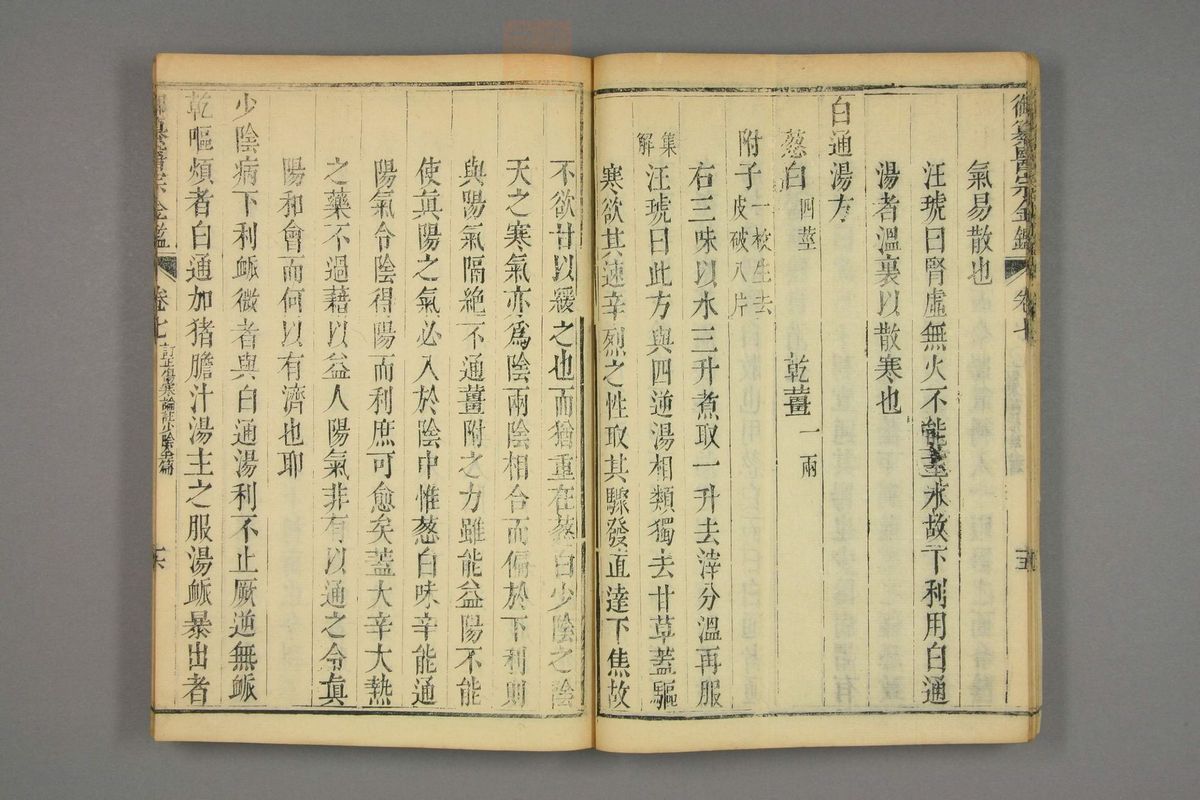 御纂醫宗金鑑 卷七 十五
氣易散也
汪琥曰腎虛無火不能主水故下利用白通
湯者溫裏以散寒也
白通湯方
葱白四莖 乾薑一兩
附子一枚生去皮破八片
右三味以水三升煮取一升去滓分溫再服
集解
汪琥曰此方與四逆湯相類獨去甘草蓋驅
寒欲其速辛烈之性取其驟發直達下焦故
不欲甘以緩之也而猶重在葱白少陰之陰
天之寒氣亦爲陰兩陰相合而偏於下利則
與陽氣隔絶不通薑附之力雖能益陽不能
使眞陽之氣必入於陰中惟葱白味辛能通
陽氣令陰得陽而利庶可愈矣蓋大辛大熱
之藥不過藉以益人陽氣非有以通之令眞
陽和會而何以有濟也耶
少陰病下利脈微者與白通湯利不止厥逆無脈
乾嘔煩者白通加猪膽汁湯主之服湯脈暴出者
御纂醫宗金鑑 卷七 訂正傷寒論註少陰全篇 十六